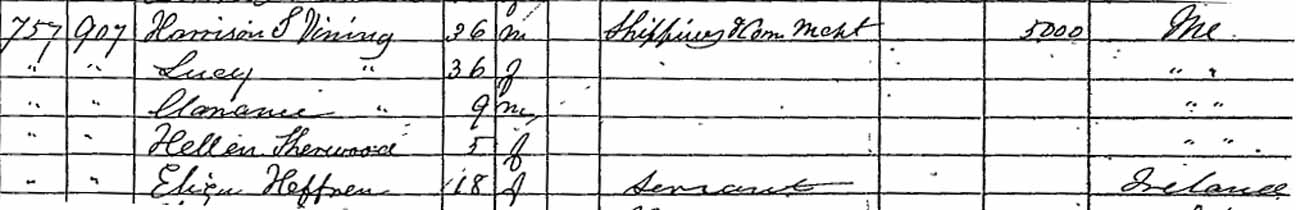 757 907 Harrison S Vining 36 m Shipping & Com Mcht 5000 Me.
" " Lucy " 36 f " "
" " " 9 m " "
" " Hellen Sherwood 5 f " "
" " Eliza Heffren 18 f Servant Ireland